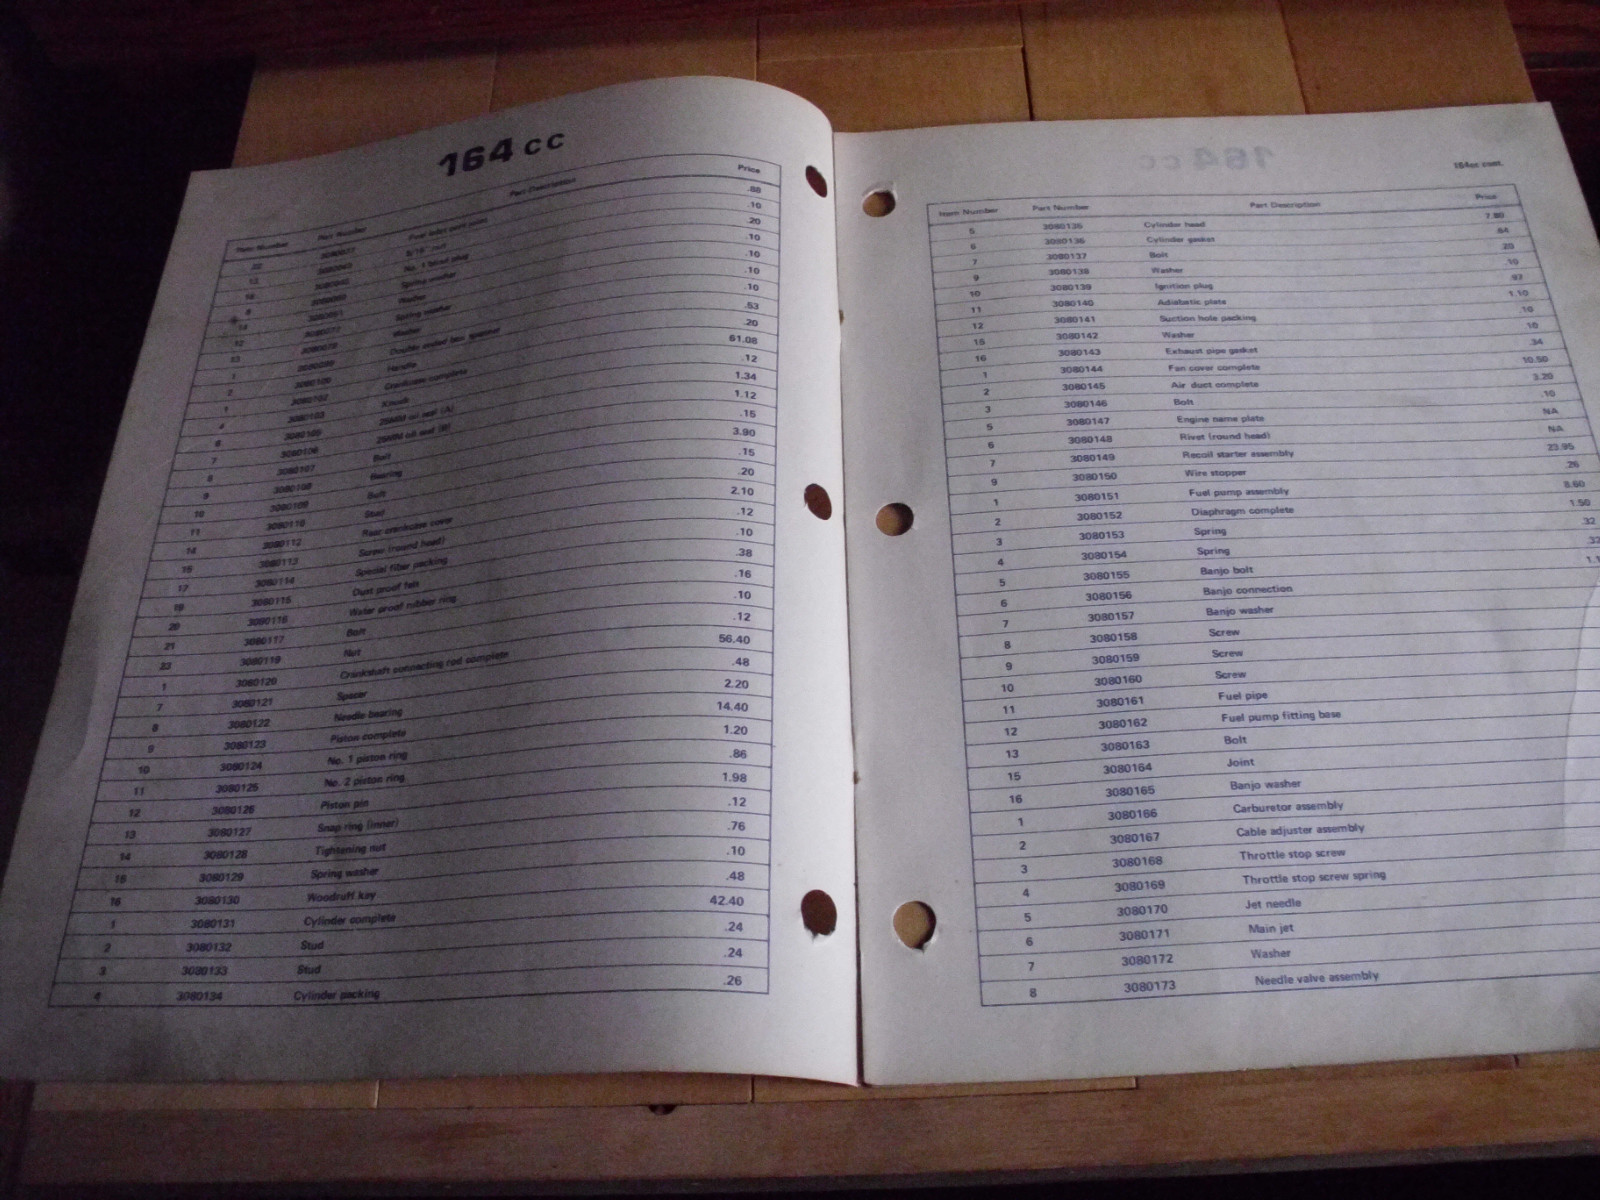 164cc
Item Number Part Number Part Description Price
22 Fuel inlet .88
13 5/16 nut .10
18 No. 1 blind plug .20
8 Spring washer .10
14 Washer .10
12 3080077 Spring washer .10
13 3080078 Washer .10
1 3080099 Double ended box spanner .53
2 3080100 Handle .20
1 3080102 Crankcase complete 61.08
4 3080103 Knock .12
6 3080105 25MM oil seal (A) 1.34
7 3080106 25MM oil seal (B) 1.12
8 3080107 Bolt .15
9 3080108 Bearing 3.90
10 3080109 Bolt .15
11 3080110 Stud .20
14 3080112 Rear crankcase cover 2.10
16 3080113 Screw (round head) .12
17 3080114 Special fiber packing .10
19 3080115 Dust proof felt .38
20 3080116 Water proof rubber ring .16
21 3080117 Bolt .10
23 3080119 Nut .12
1 3080120 Crankshaft connecting rod complete 56.40
7 3080121 Spacer .48
8 3080122 Needle bearing 2.20
9 3080123 Piston complete 14.40
10 3080124 No. 1 piston ring 1.20
11 3080125 No. 2 piston ring .86
12 3080126 Piston pin 1.98
13 3080127 Snap ring (inner) .12
14 3080128 Tightening nut .76
15 3080129 Spring washer .10
16 3080130 Woodruff key .48
1 3080131 Cylinder complete 42.40
2 3080132 Stud .24
3 3080133 Stud .24
4 3080134 Cylinder packing .26
164cc cont.
Item Number Part Number Part Description Price
5 3080135 Cylinder head 7.80
6 3080136 Cylinder gasket .64
7 3080137 Bolt .20
9 3080138 Washer .10
10 3080139 Ignition plug .97
11 3080140 Adiabatic plate 1.10
12 3080141 Suction hole packing .10
15 3080142 Washer 10
16 3080143 Exhaust pipe gasket .34
1 3080144 Fan cover complete 10.50
2 3080145 Air duct complete 3.20
3 3080146 Bolt .10
5 3080147 Engine name plate NA
6 3080148 Rivet (round head) NA
7 3080149 Recoil starter assembly 23.95
9 3080150 Wire stopper .26
1 3080151 Fuel pump assembly 8.60
2 3080152 Diaphragm complete 1.50
3 3080153 Spring .32
4 3080154 Spring .32
5 3080155 Banjo bolt 1.1
6 3080156 Banjo connection
7 3080157 Banjo washer
8 3080158 Screw
9 3080159 Screw
10 3080160 Screw
11 3080161 Fuel pipe
12 3080162 Fuel pump fitting base
13 3080163 Bolt
15 3080164 Joint
16 3080165 Banjo washer
1 3080166 Carburetor assembly
2 3080167 Cable adjuster assembly
3 3080168 Throttle stop screw
4 3080169 Throttle stop screw spring
5 3080170 Jet needle
6 3080171 Main jet
7 3080172 Washer
8 3080173 Needle valve assembly